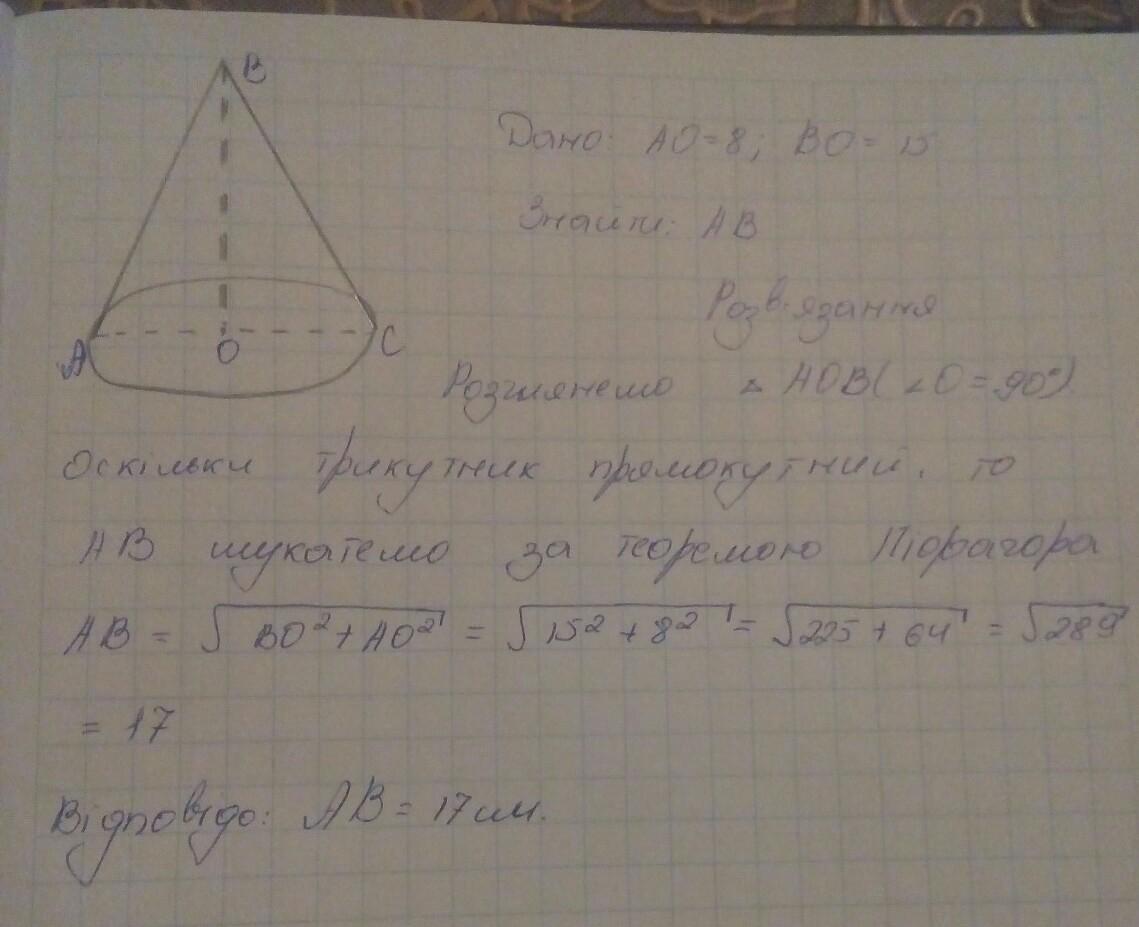 B
Дано: AO=8; BO= 15
Знайти: AB
Розв'язання
A O C
Розглянемо ▵ AOB(∠O=90°)
Оскільки трикутник прямокутний, то
AB шукатемо за теоремою Піфагора
AB = √BO²+AO² = √15²+8² = √225+64 = √289
= 17
Відповідь: AB = 17 см.